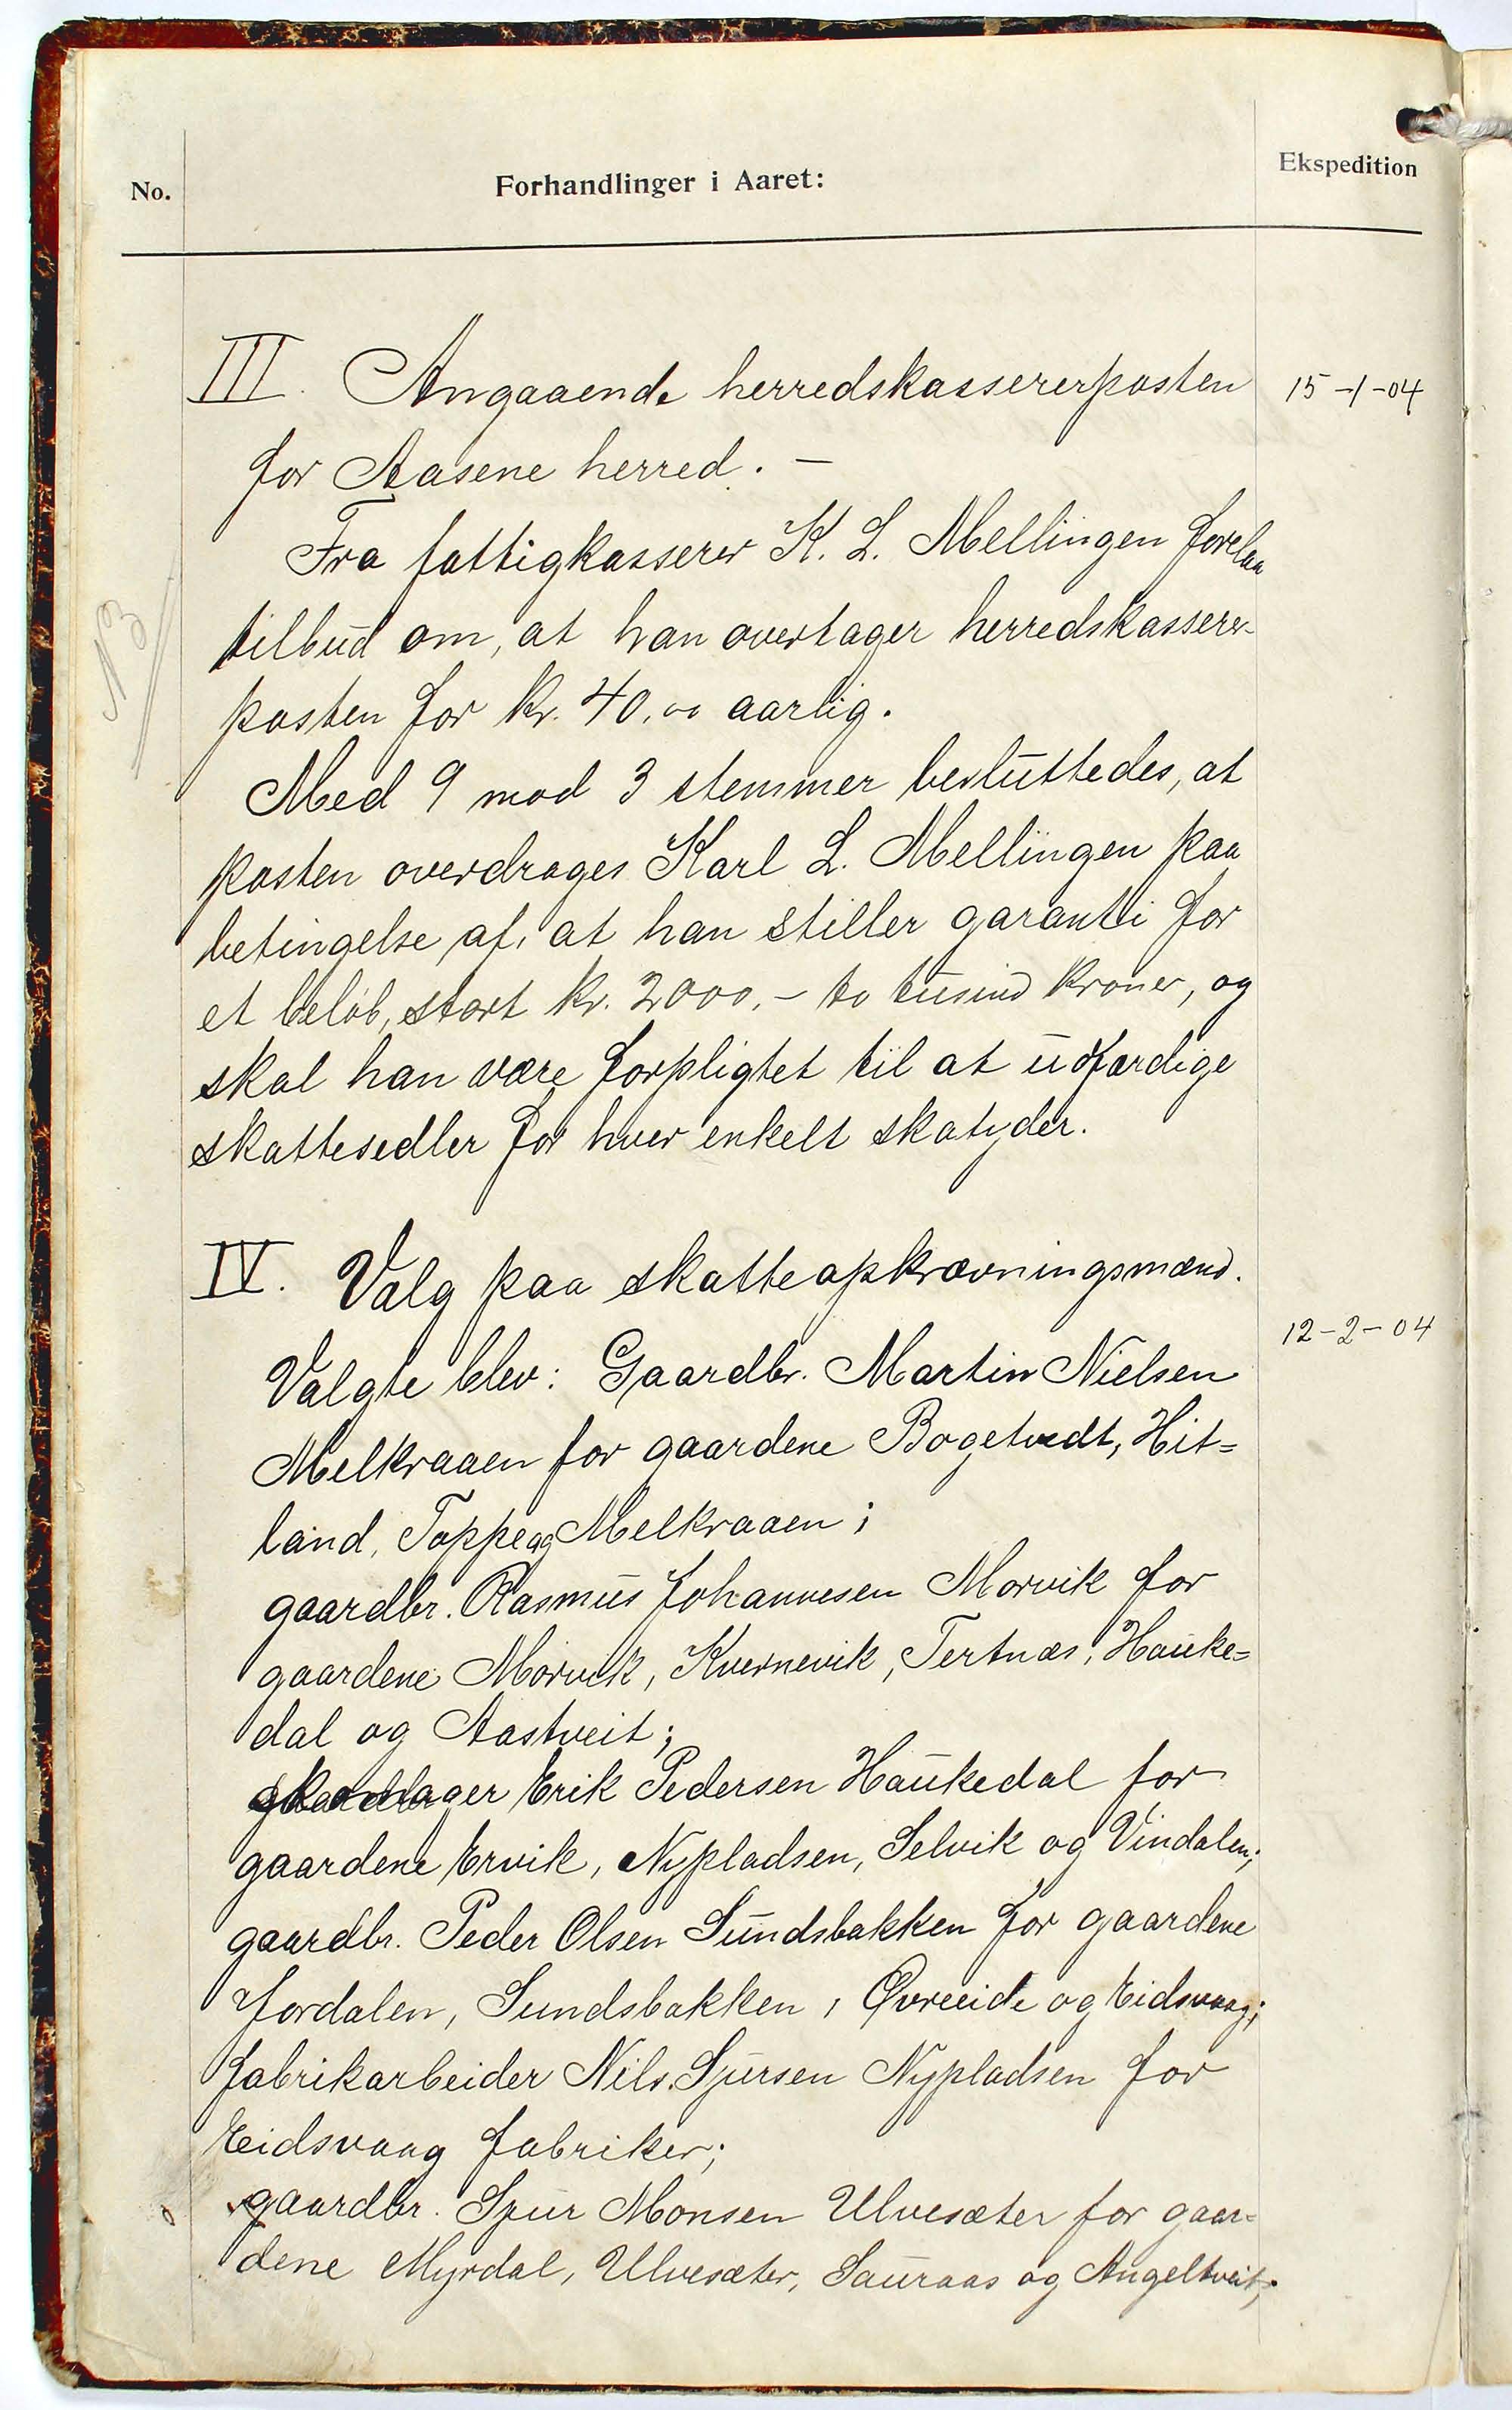 No.
Forhandlinger i Aaret:
Ekspedition
III. Angaaende herredskassererposten
15-1-04
for Aasene herred. —
Fra fattigkasserer K. L. Mellingen forelaa
tilbud om, at han overtager herredskasserer-
posten for kr. 40,00 aarlig.
NB
Med 9 mod 3 stemmer besluttedes, at
posten overdrages Karl L. Mellingen paa
betingelse af, at han stiller garanti for
et beløb, stort kr. 2000,- to tusind kroner, og
skal han være forpligtet til at udfærdige
skattesedler for hver enkelt skatyder.
IV. Valg paa skatteopkrævningsmænd.
12-2-04
Valgte blev: Gaardbr. Martin Nielsen
Melkraaen for gaardene Bogetvedt, Hit=
land, Toppe og Melkraaen;
gaardbr. Rasmus Johannesen Morvik for
gaardene Morvik, Kvernevik, Tertnæs, Hauke=
dal og Aastveit;
Erik Pedersen Haukedal for
gaardene Ervik, Nypladsen, Selvik og Vindalen;
gaardbr. Peder Olsen Sundsbakken for gaardene
Jordalen, Sundsbakken, Øvreeide og Eidsvaag;
fabrikarbeider Nils Sjursen Nypladsen for
Eidsvaag fabriker;
gaardbr. Sjur Monsen Ulvesæter for gaar=
dene Myrdal, Ulvesæter, Sauraas og Angeltveit;